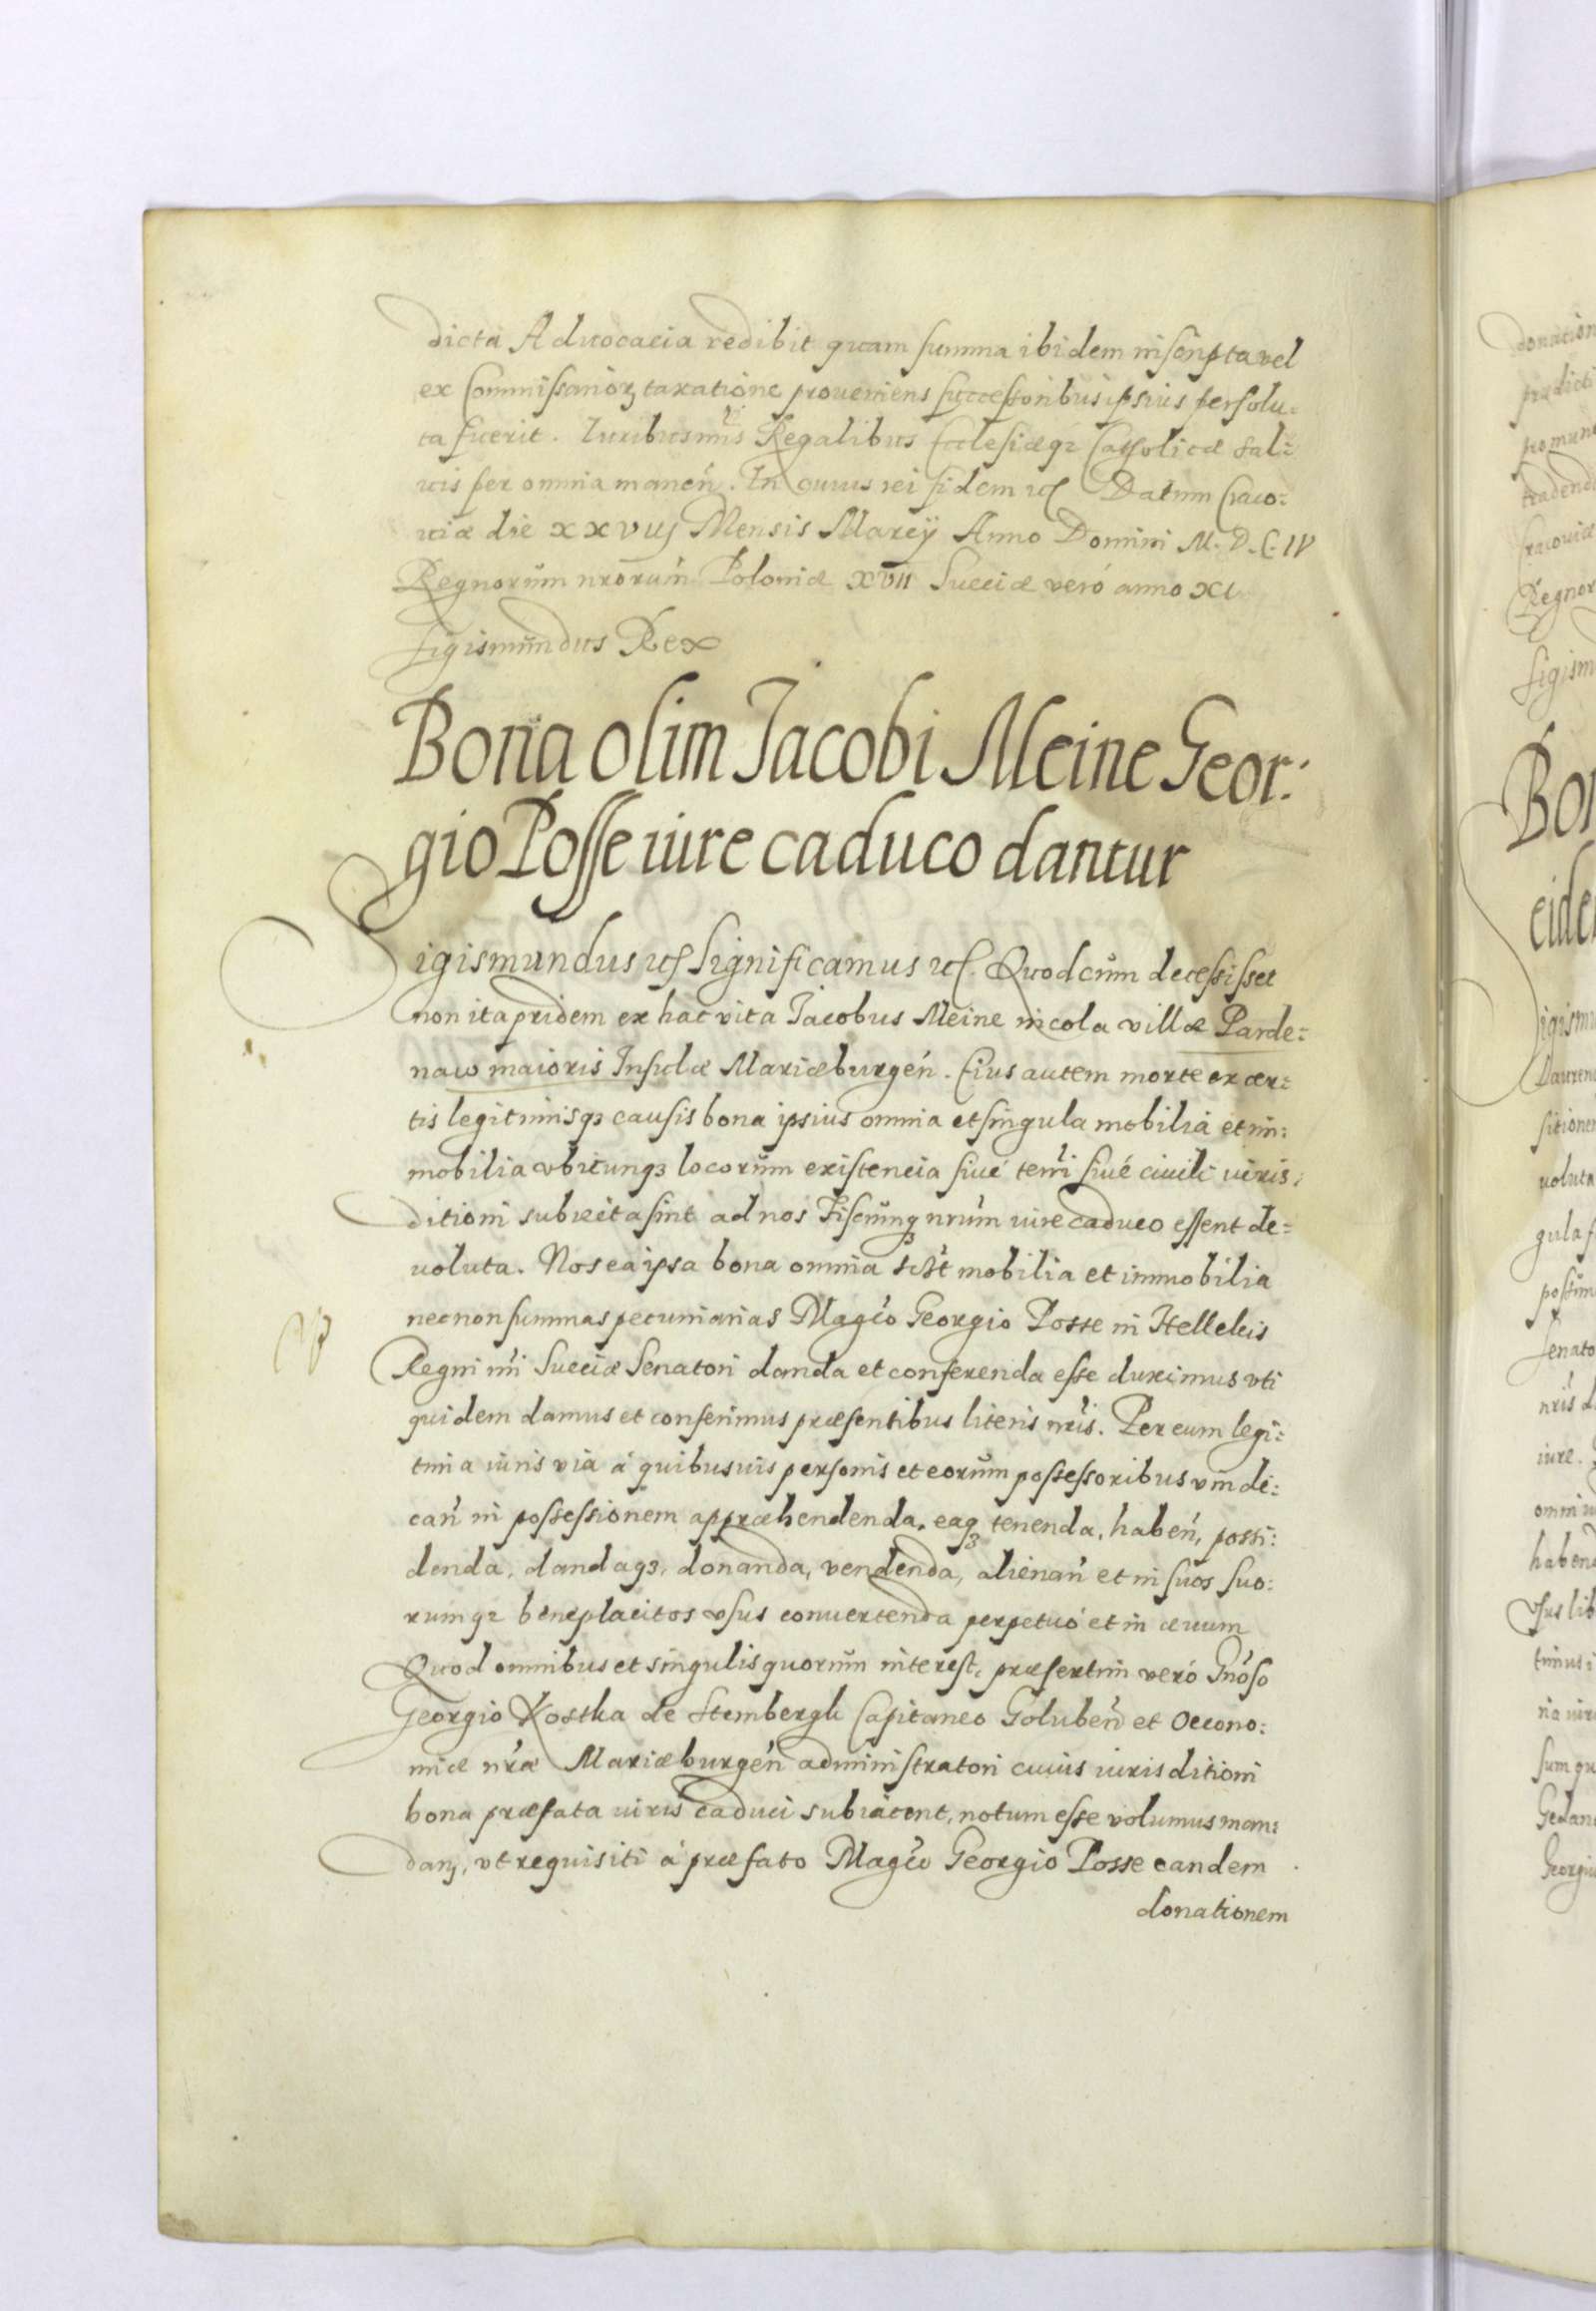 dicta Aduocacia redibit quam summa ibidem inscripta vel
ex Commissarioꝝ taxatione proueniens successoribus ipsius persolu=
ta fuerit. Iuribus nr̃is Regalibus Ecclesiæqꝫ Catholicæ sal=
uis per omnia maneń. In cuius rei fidem ꝛc̃ Datum Craco=
uiæ die XXVIIJ Mensis Marcÿ Anno Domini M.D.C.IV
Regnorum nrorum Poloniæ XVII Sueciæ veró anno XI
Sigismundus Rex
Bona olim Jacobi Meine Geor:
gio Posse iure caduco dantur
Sigismundus ꝛc̃ Significamus ꝛc̃. Quod cum decessisset
non ita pridem ex hac vita Jacobus Meine incola villæ Parde=
naw maioris Insulæ Mariæburgeń. Eius autem morte ex cer=
tis legitimisqꝫ causis bona ipsius omnia et singula mobilia et im=
mobilia vbicunqꝫ locorum existencia siué terri siué ciuili iuris=
ditioni subiecta sint ad nos Fiscumqꝫ nrum iure caduco essent de=
uoluta. Nos ea ipsa bona omnia mobilia et immobilia
necnon summas pecuniarias Magc̃o Georgio Posse in Hellekis
Regni nr̃i Sueciæ Senatori danda et conferenda esse duximus vti
quidem damus et conferimus præsentibus literis nr̃is. Per eum legi=
tima iuris via á quibusuis personis et eorum possessoribus vindi=
cań in possessionem appræhendenda, eaqꝫ tenenda, habeń, possi=
denda, dandaqꝫ, donanda, vendenda, alienań et in suos suo=
rumqꝫ beneplacitos vsus conuertenda perpetuó et in æuum
Quod omnibus et singulis quorum interest, præsertim veró Gnóso
Georgio Kostka de Stembergk Capitaneo Golubeń et Oecono=
miæ nr̃æ Mariæburgeń administratori cuius iurisditioni
bona præfata iuris caduci subiacent, notum esse volumus man=
danṣ, vt requisiti á præfato Magc̃o Georgio Posse eandem
donationem